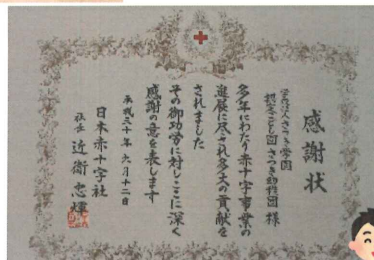 感謝状
学校法人さつき学園
認定こども園さつき幼稚園 様
多年にわたり赤十字事業の
進展に尽され多大の貢献を
されました
その御功労に対しここに深く
感謝の意を表します
平成三十年 六月十二日
日本赤十字社
社長 近衛忠煇